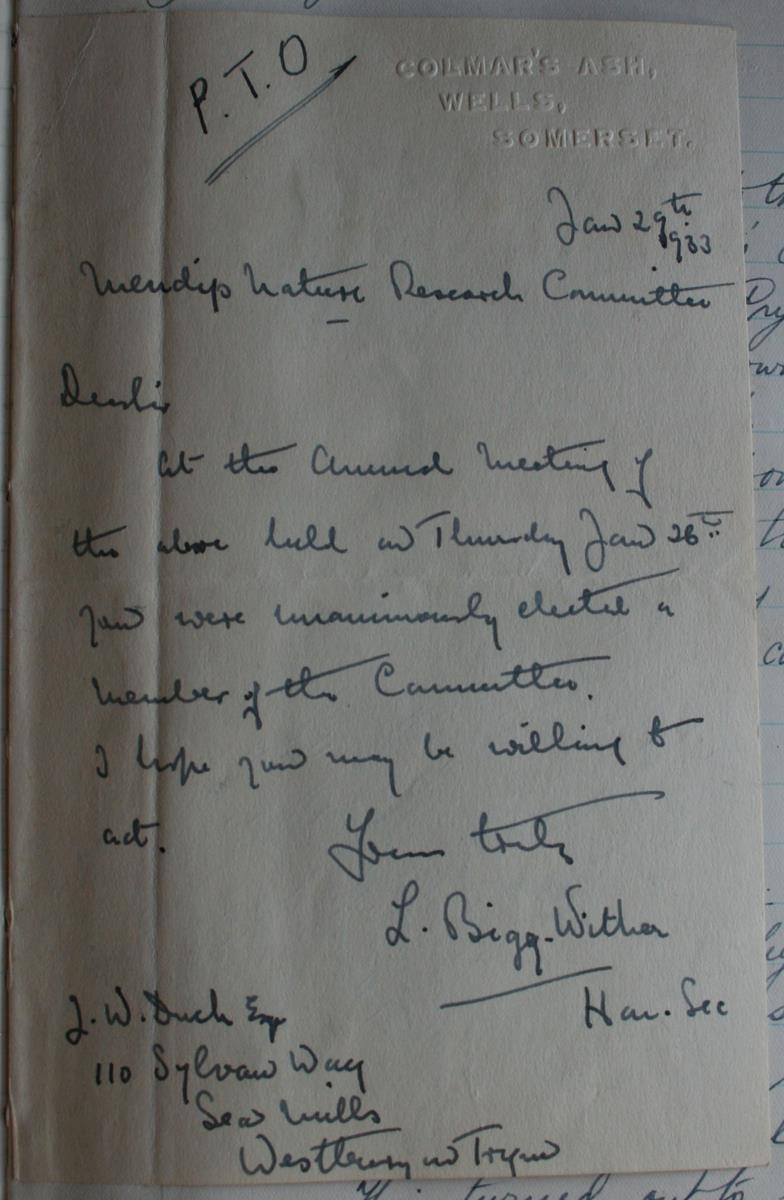 P.T.O
COLMAR'S ASH,
WELLS,
SOMERSET.
Jan 29th
1933
Mendip Nature Research Committee
Dear Sir
At the Annual Meeting of
the above held on Thursday Jan 26th
you were unanimously elected a
member of the Committee.
I hope you may be willing to
act.
Yours truly
L. Bigg-Wither
Hon. Sec
J. W. Duck Esq
110 Sylvan Way
Sea Mills
Westbury on Trym
turned out to